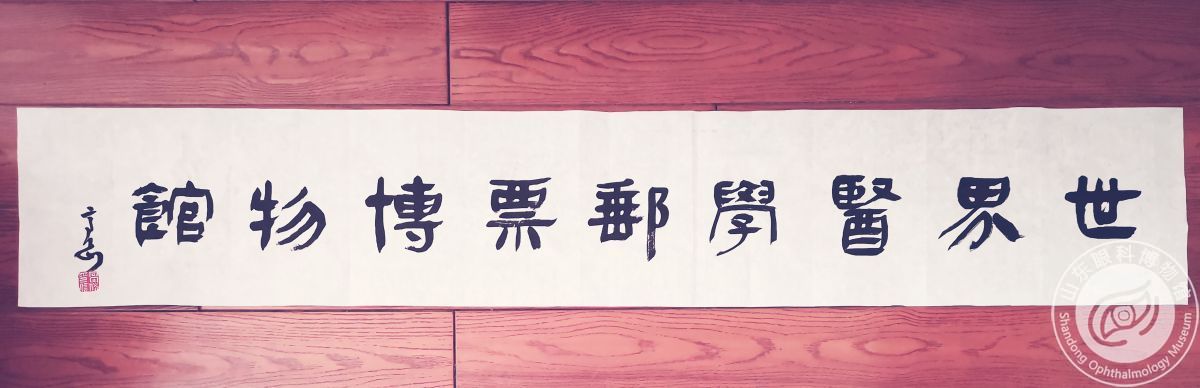 世界醫學郵票博物館
山东眼科博物馆
Shandong Ophthalmology Museum